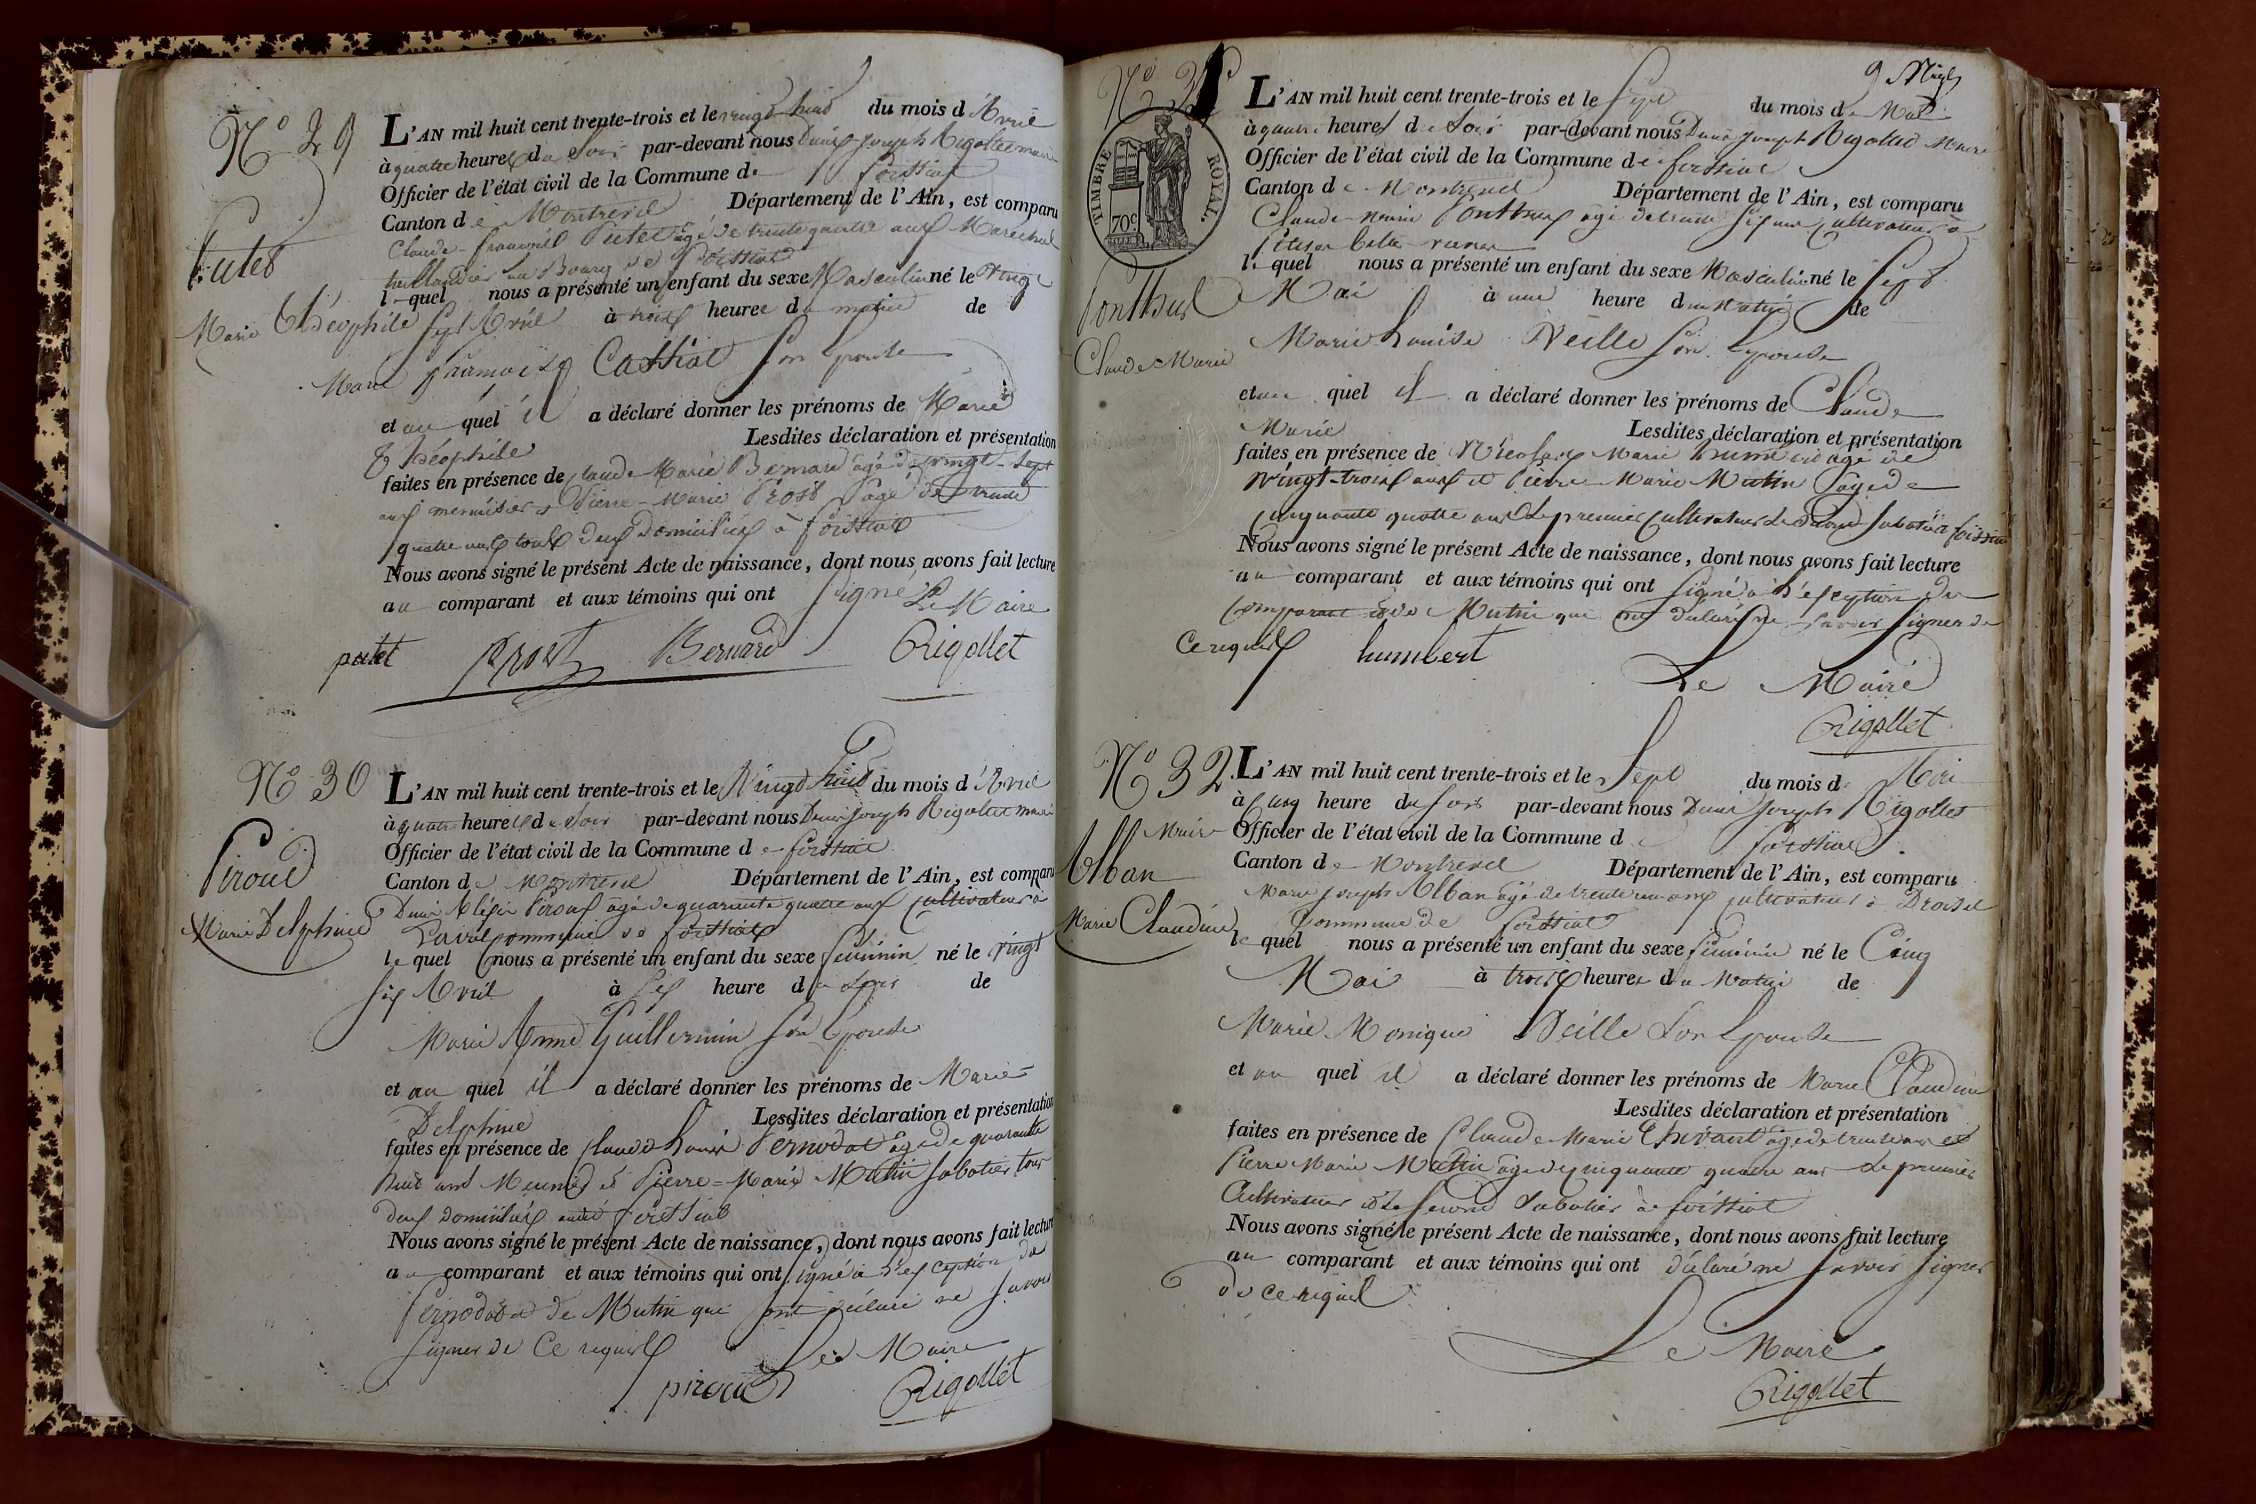 N.o 29
Putet
Marie Théophile
L'AN mil huit cent trente-trois et le vingt huit du mois d'Avril
à quatre heures du soir par-devant nous Denis-Joseph Rigollet maire
Officier de l'état civil de la Commune de Foissiat
Canton de Montrevel Département de l'Ain, est comparu
Claude-François Putet âgé de trente quatre ans Maréchal
taillandier au Bourg de Foissiat
lequel nous a présenté un enfant du sexe Masculin né le vingt
sept Avril à trois heures du matin de
Marie Françoise Cassiat son épouse
et au quel il a déclaré donner les prénoms de Marie
Théophile Lesdites déclaration et présentation
faites en présence de Claude Marie Bernard âgé de vingt-sept
ans menuisier et Pierre-Marie Prost âgé de trente
quatre ans tous deux domiciliés à Foissiat
Nous avons signé le présent Acte de naissance, dont nous avons fait lecture
au comparant et aux témoins qui ont signé
Le Maire
putet Prost Bernard Rigollet
N.o 30
Piroud
Marie Delphine
L'AN mil huit cent trente-trois et le Vingt huit du mois d'Avril
à quatre heures du soir par-devant nous Denis Joseph Rigollet maire
Officier de l'état civil de la Commune de foissiat
Canton de Montrevel Département de l'Ain, est comparu
Denis Piroud âgé de quarante quatre ans cultivateur à
commune de foissiat
le quel nous a présenté un enfant du sexe féminin né le vingt
six Avril à six heure du soir de
Marie Anne Guillermin son épouse
et au quel il a déclaré donner les prénoms de Marie
Delphine Lesdites déclaration et présentation
faites en présence de Claude Louis Pernodat âgé de quarante
huit ans Meunier et Pierre=Marie Mutin sabotier tous
deux domiciliés audit foissiat
Nous avons signé le présent Acte de naissance, dont nous avons fait lecture
au comparant et aux témoins qui ont signé à l'exception de
Pernodat et de Mutin qui ont déclaré ne savoir
signer de ce requis
Le Maire
piroud Rigollet
9
N.o 31
TIMBRE ROYAL.
70c
Ponthus
Claude Marie
L'AN mil huit cent trente-trois et le Sept du mois de Mai
à quatre heures du soir par-devant nous Denis Joseph Rigollet Maire
Officier de l'état civil de la Commune de foissiat
Canton de Montrevel Département de l'Ain, est comparu
Claude-Marie Ponthus âgé de trente six ans cultivateur à
lequel nous a présenté un enfant du sexe Masculin né le Sept
Mai à une heure du matin de
Marie Louise Veille son épouse
et au quel il a déclaré donner les prénoms de Claude
Marie Lesdites déclaration et présentation
faites en présence de Nicolas Marie humbert âgé de
vingt-trois ans et Pierre Marie Mutin âgé de
cinquante quatre ans le premier cultivateur le second sabotier à foissiat
Nous avons signé le présent Acte de naissance, dont nous avons fait lecture
au comparant et aux témoins qui ont signé à l'exception du
comparant et de Mutin qui ont déclaré ne savoir signer de
ce requis humbert
Le Maire
Rigollet
N.o 32
Alban
Marie Claudine
L'AN mil huit cent trente-trois et le Sept du mois de Mai
à cinq heure du soir par-devant nous Denis Joseph Rigollet
Maire Officier de l'état civil de la Commune de foissiat
Canton de Montrevel Département de l'Ain, est comparu
Marie Joseph Alban âgé de trente un ans cultivateur à
commune de foissiat
le quel nous a présenté un enfant du sexe féminin né le Cinq
Mai à trois heures du Matin de
Marie Monique Veille son épouse
et au quel il a déclaré donner les prénoms de Marie Claudine
Lesdites déclaration et présentation
faites en présence de Claude Marie âgé de trente ans et
Pierre Marie Mutin âgé de cinquante quatre ans le premier
Cultivateur et le second sabotier à foissiat
Nous avons signé le présent Acte de naissance, dont nous avons fait lecture
au comparant et aux témoins qui ont déclaré ne savoir signer
de ce requis
Le Maire
Rigollet